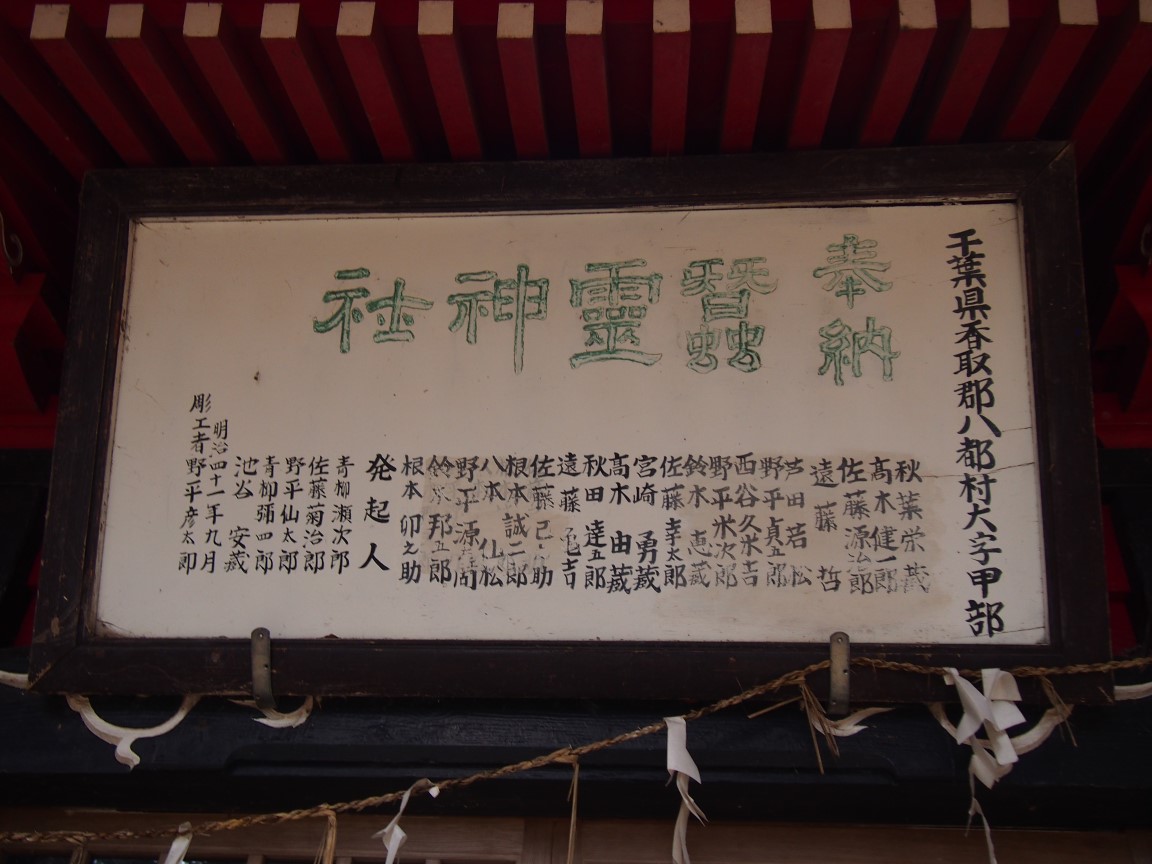 千葉県香取郡八都村大字甲部
奉納
蠶靈神社
秋葉栄蔵
髙木健一郎
佐藤源治郎
遠藤哲
芦田若松
野平貞五郎
西谷久米吉
野平米次郎
鈴木恵蔵
佐藤幸太郎
宮崎勇蔵
髙木由蔵
秋田達五郎
遠藤亀吉
佐藤己之助
根本誠二郎
八本仙松
野平源
鈴木邦五郎
根本卯之助
発起人
青柳瀬次郎
佐藤菊治郎
野平仙太郎
青柳弥四郎
池谷安蔵
明治四十一年九月
彫工者野平彦太郎